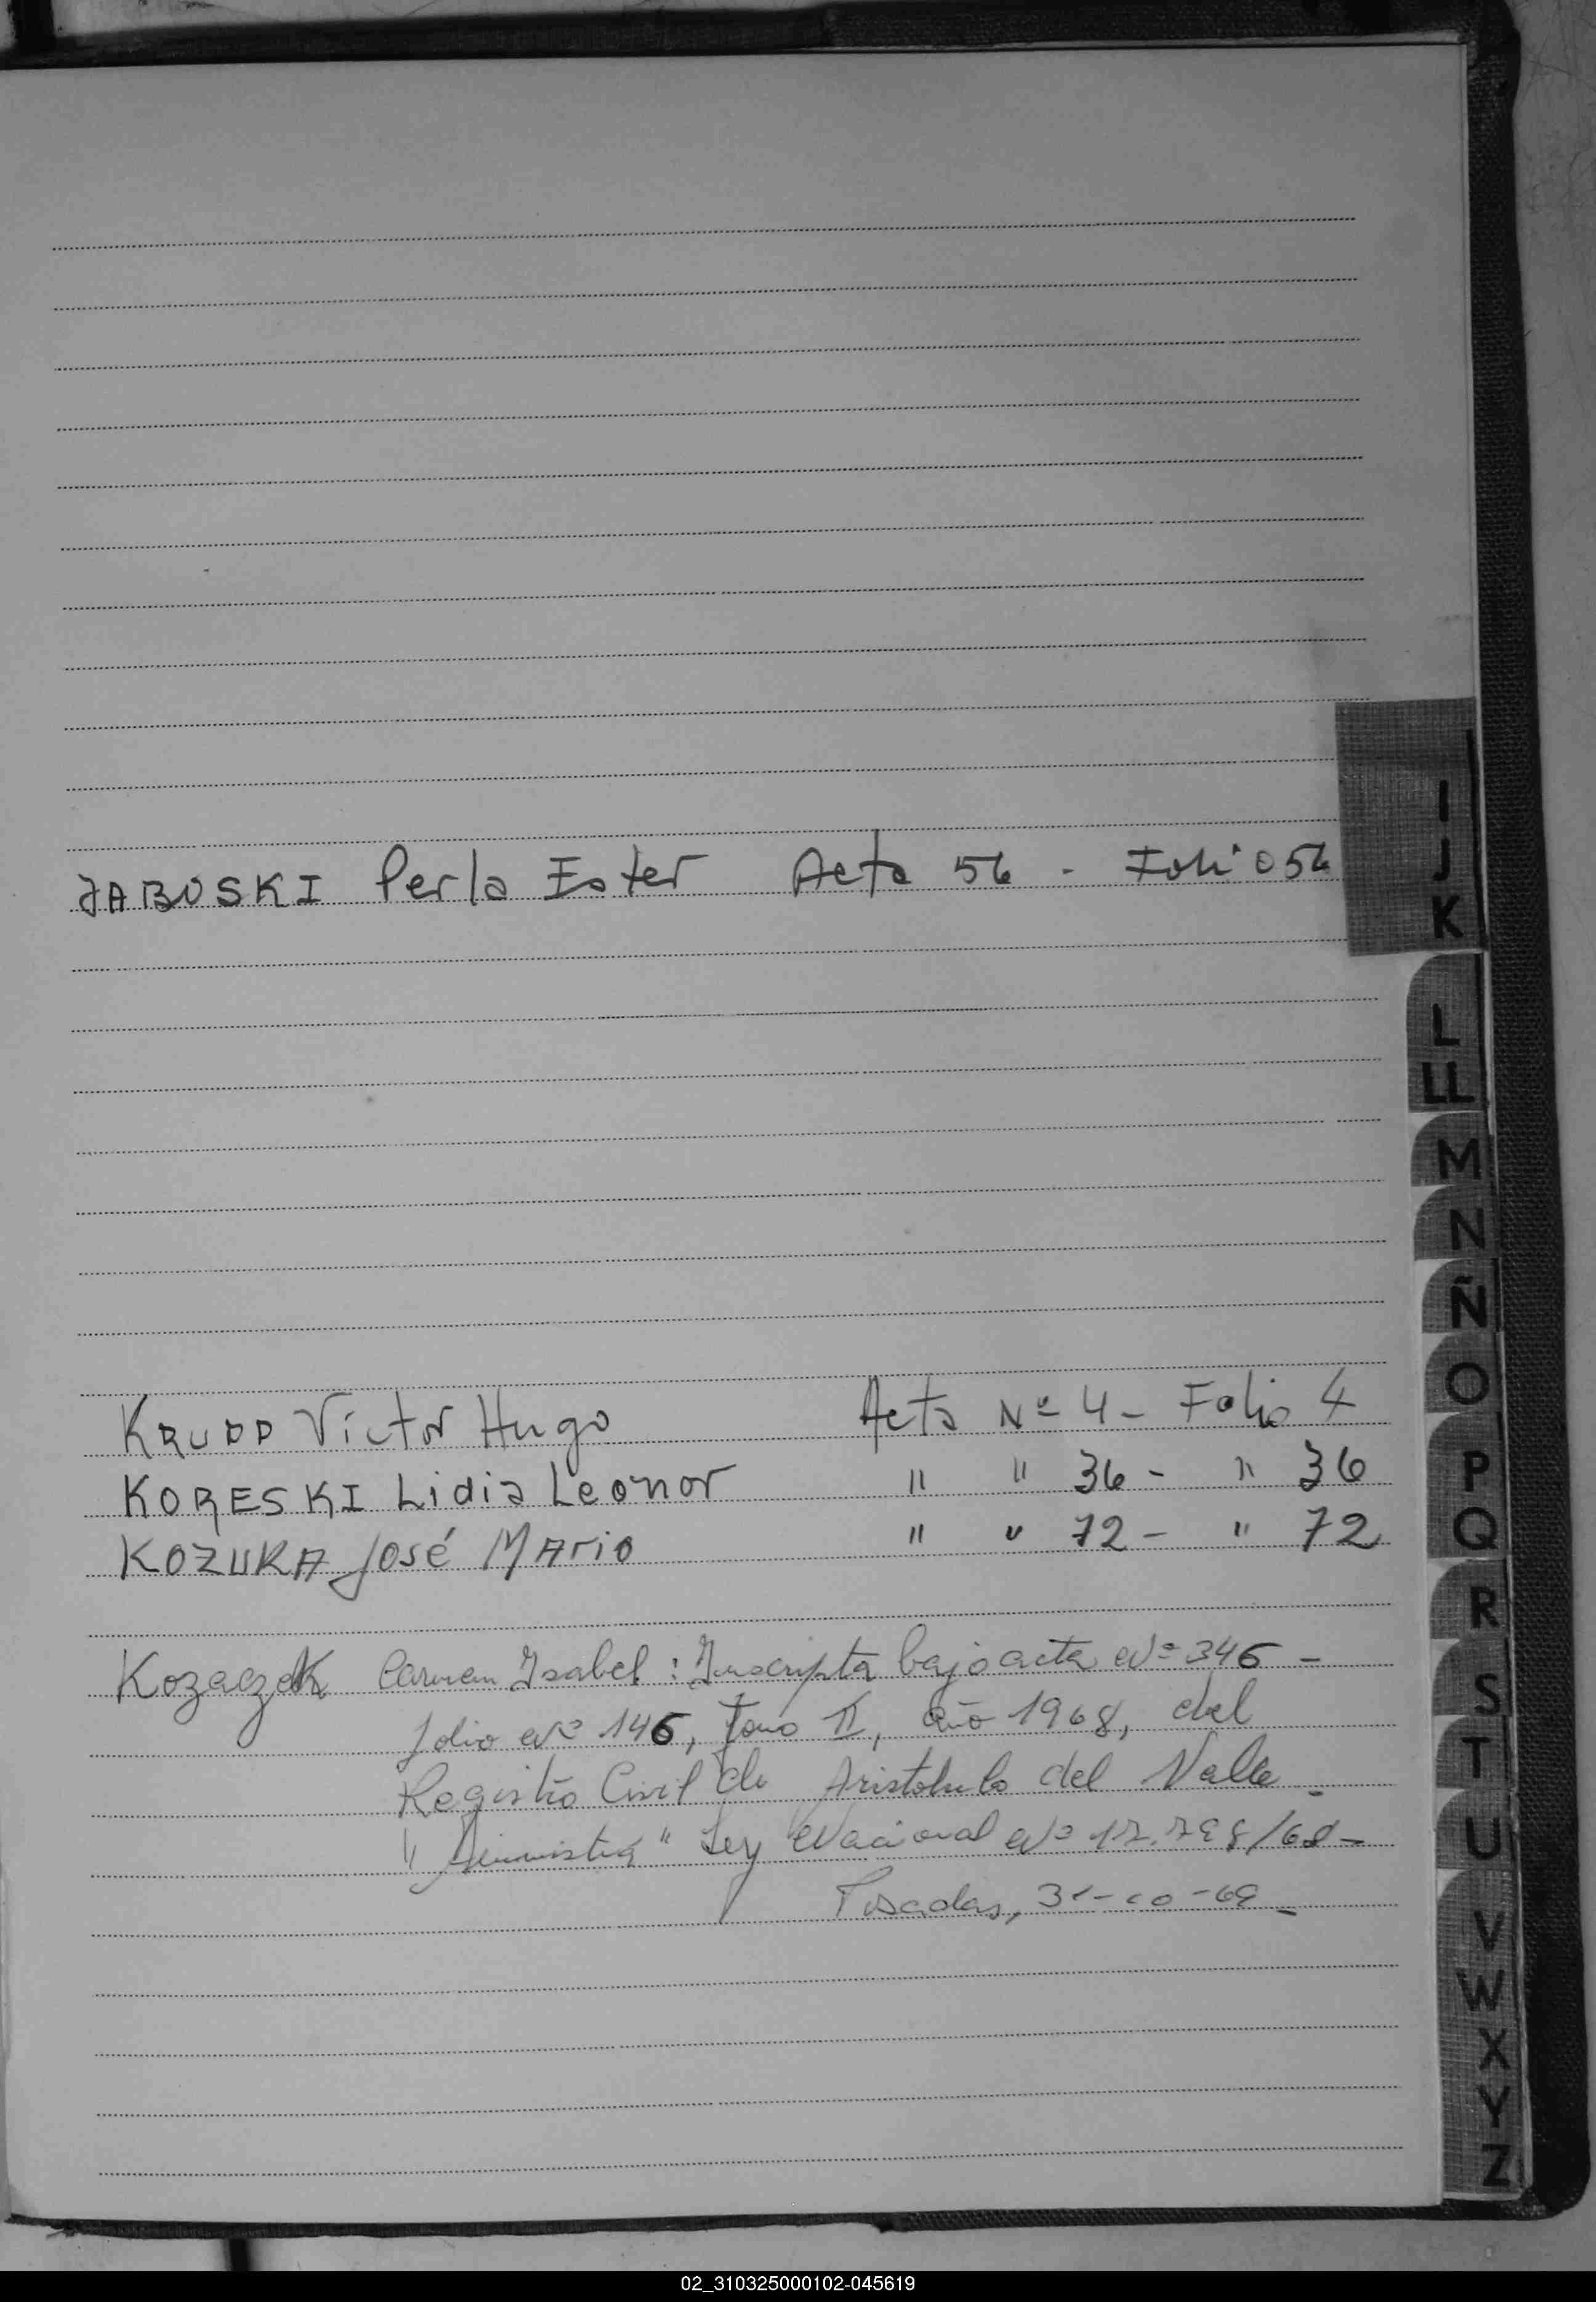 JABUSKI Perla Ester Acta 56 - Folio 56
KRUPP Victor Hugo Acta Nº 4 - Folio 4
KORESKI Lidia Leonor " " 36 - " 36
KOZUKA José Mario " " 72 - " 72
Kozaczek Carmen Isabel : Inscripta bajo acta Nº 346 -
folio Nº 146, Tomo II, año 1968, del
Registro Civil de Aristobulo del Valle -
" Ley Nacional Nº 17.798/68 -
Posadas, 31-10-69 -
I
J
K
L
LL
M
N
Ñ
O
P
Q
R
S
T
U
V
W
X
Y
Z
02_310325000102-045619